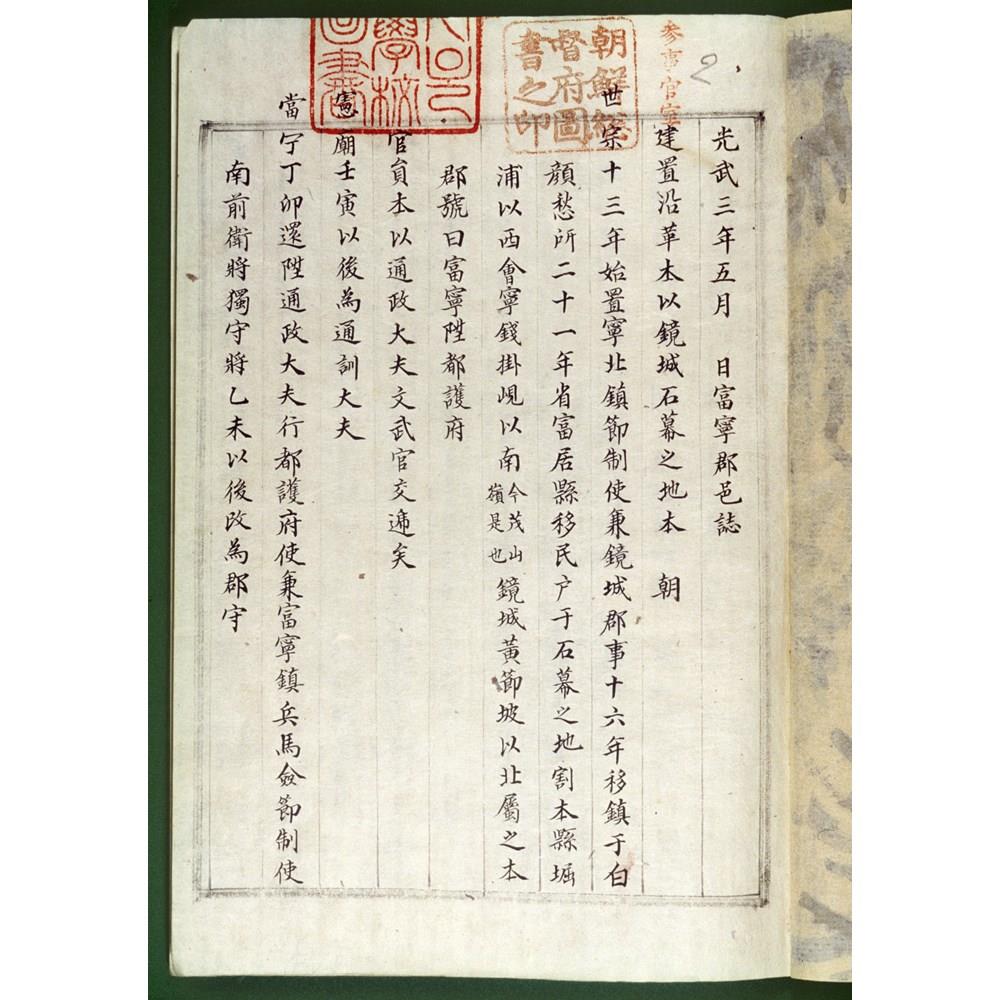 光武三年五月　日富寧郡邑誌
建置沿革本以鏡城石幕之地本　朝
世宗十三年始置寧北鎮節制使兼鏡城郡事十六年移鎮于白
顔愁所二十一年省富居縣移民户于石幕之地割本縣堀
浦以西會寧錢掛峴以南今茂山嶺是也鏡城黃節坡以北屬之本
郡號曰富寧陞都護府
官員本以通政大夫文武官交遞矣
憲廟壬寅以後為通訓大夫
當宁丁卯還陞通政大夫行都護府使兼富寧鎮兵馬僉節制使
南前衛將獨守將乙未以後改為郡守
參事官室
2
朝鮮總
督府圖
書之印
學校
圖書